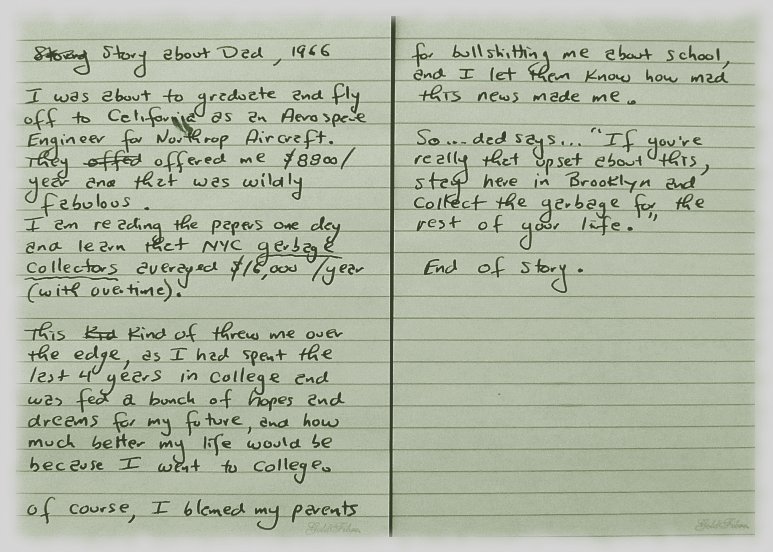 Story about Dad, 1966
I was about to graduate and fly
off to California as an Aerospace
Engineer for Northrop Aircraft.
They offed offered me $8800/
year and that was wildly
fabulous.
I am reading the papers one day
and learn that NYC garbage
collectors averaged $16,000/year
(with overtime).
This Kid Kind of threw me over
the edge, as I had spent the
last 4 years in college and
was fed a bunch of hopes and
dreams for my future, and how
much better my life would be
because I went to college.
of course, I blamed my parents
for bullshitting me about school,
and I let them know how mad
this news made me.
So... dad says... "If you're
really that upset about this,
stay here in Brooklyn and
collect the garbage for the
rest of your life."
End of story.